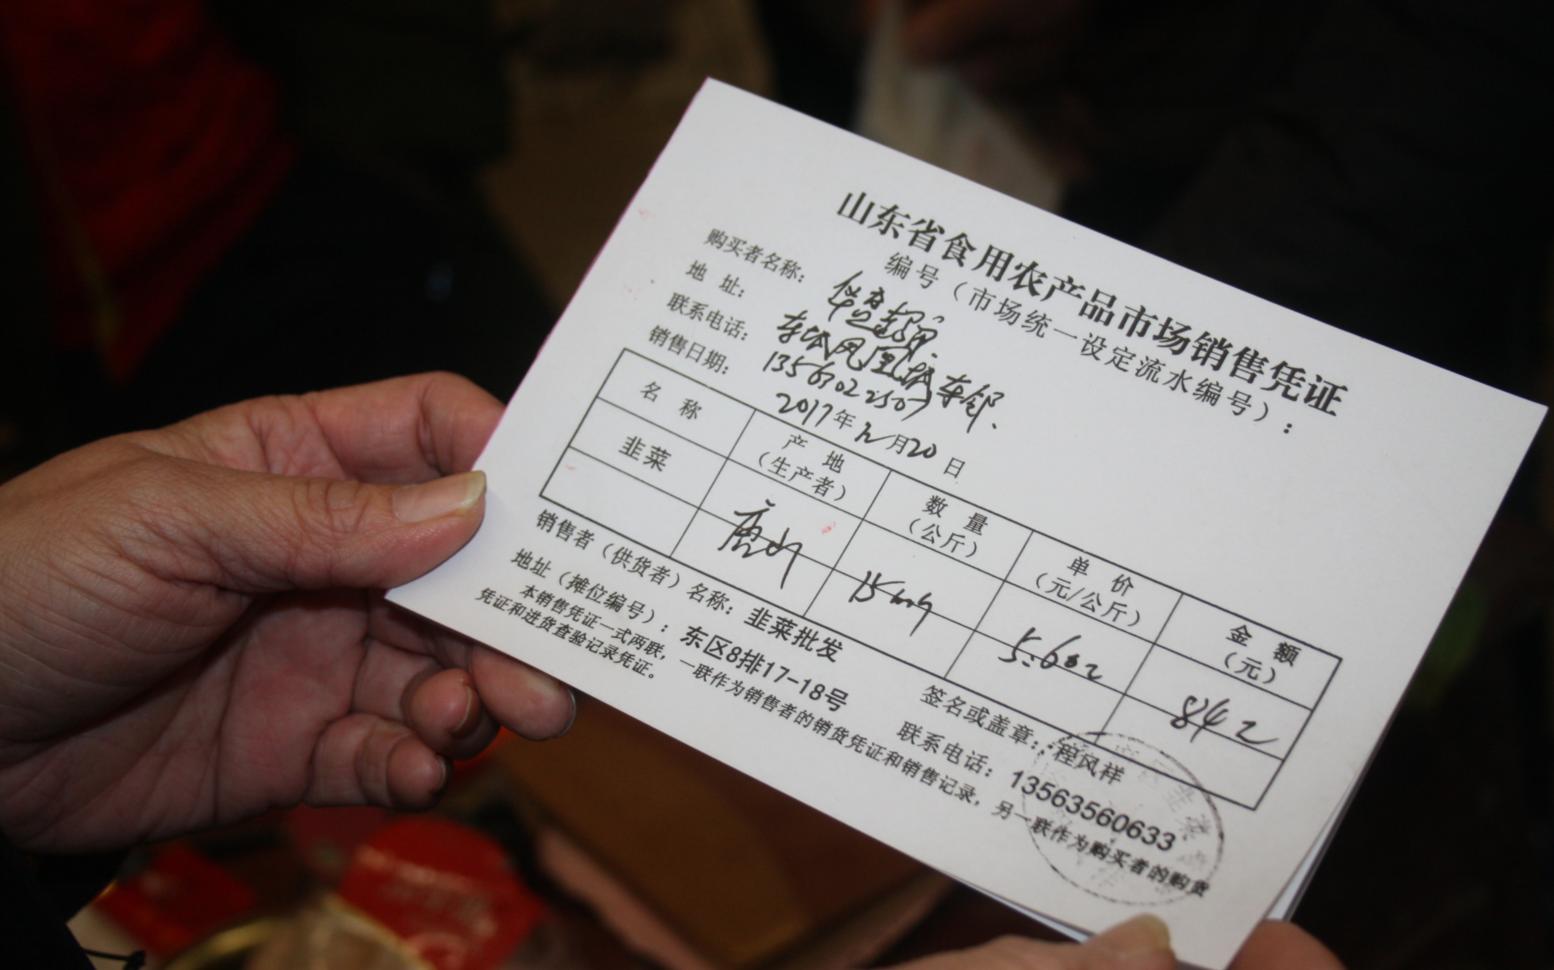 山东省食用农产品市场销售凭证
编号（市场统一设定流水编号）：
购买者名称：
地 址：东城凤凰城东邻.
联系电话：13561022507
销售日期：2017年12月20日
名 称 产 地（生产者） 数 量（公斤） 单 价（元/公斤） 金 额（元）
韭菜 唐山 15kg 5.6元 84元
销售者（供货者）名称：韭菜批发 签名或盖章：程风祥
地址（摊位编号）：东区8排17-18号 联系电话：13563560633
本销售凭证一式两联，一联作为销售者的销货凭证和销售记录，另一联作为购买者的购货
凭证和进货查验记录凭证。